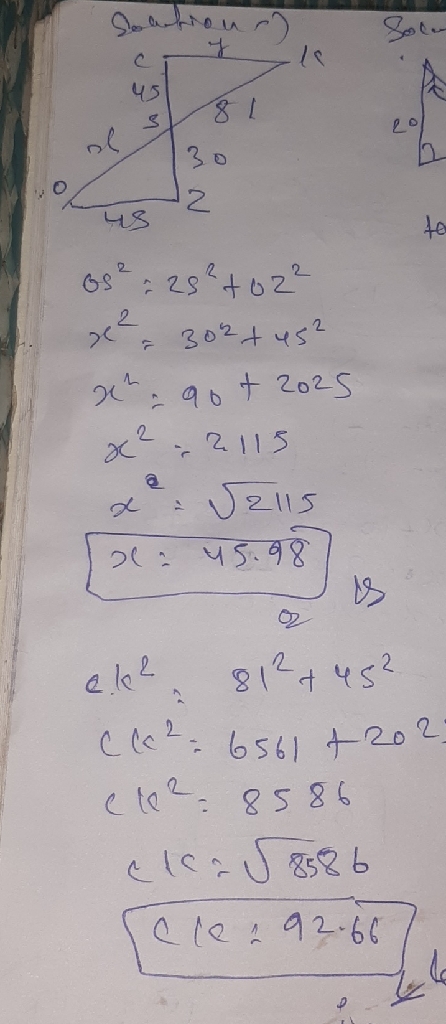 Solution →)
y
C
K
45
S
81
x
30
O
45
Z
20
to
OS² = ZS² + OZ²
x² = 30² + 45²
x² = 90 + 2025
x² = 2115
x² = √2115
x = 45.98
CK² = 81² + 45²
CK² = 6561 + 202
CK² = 8586
CK = √8586
CK = 92.66